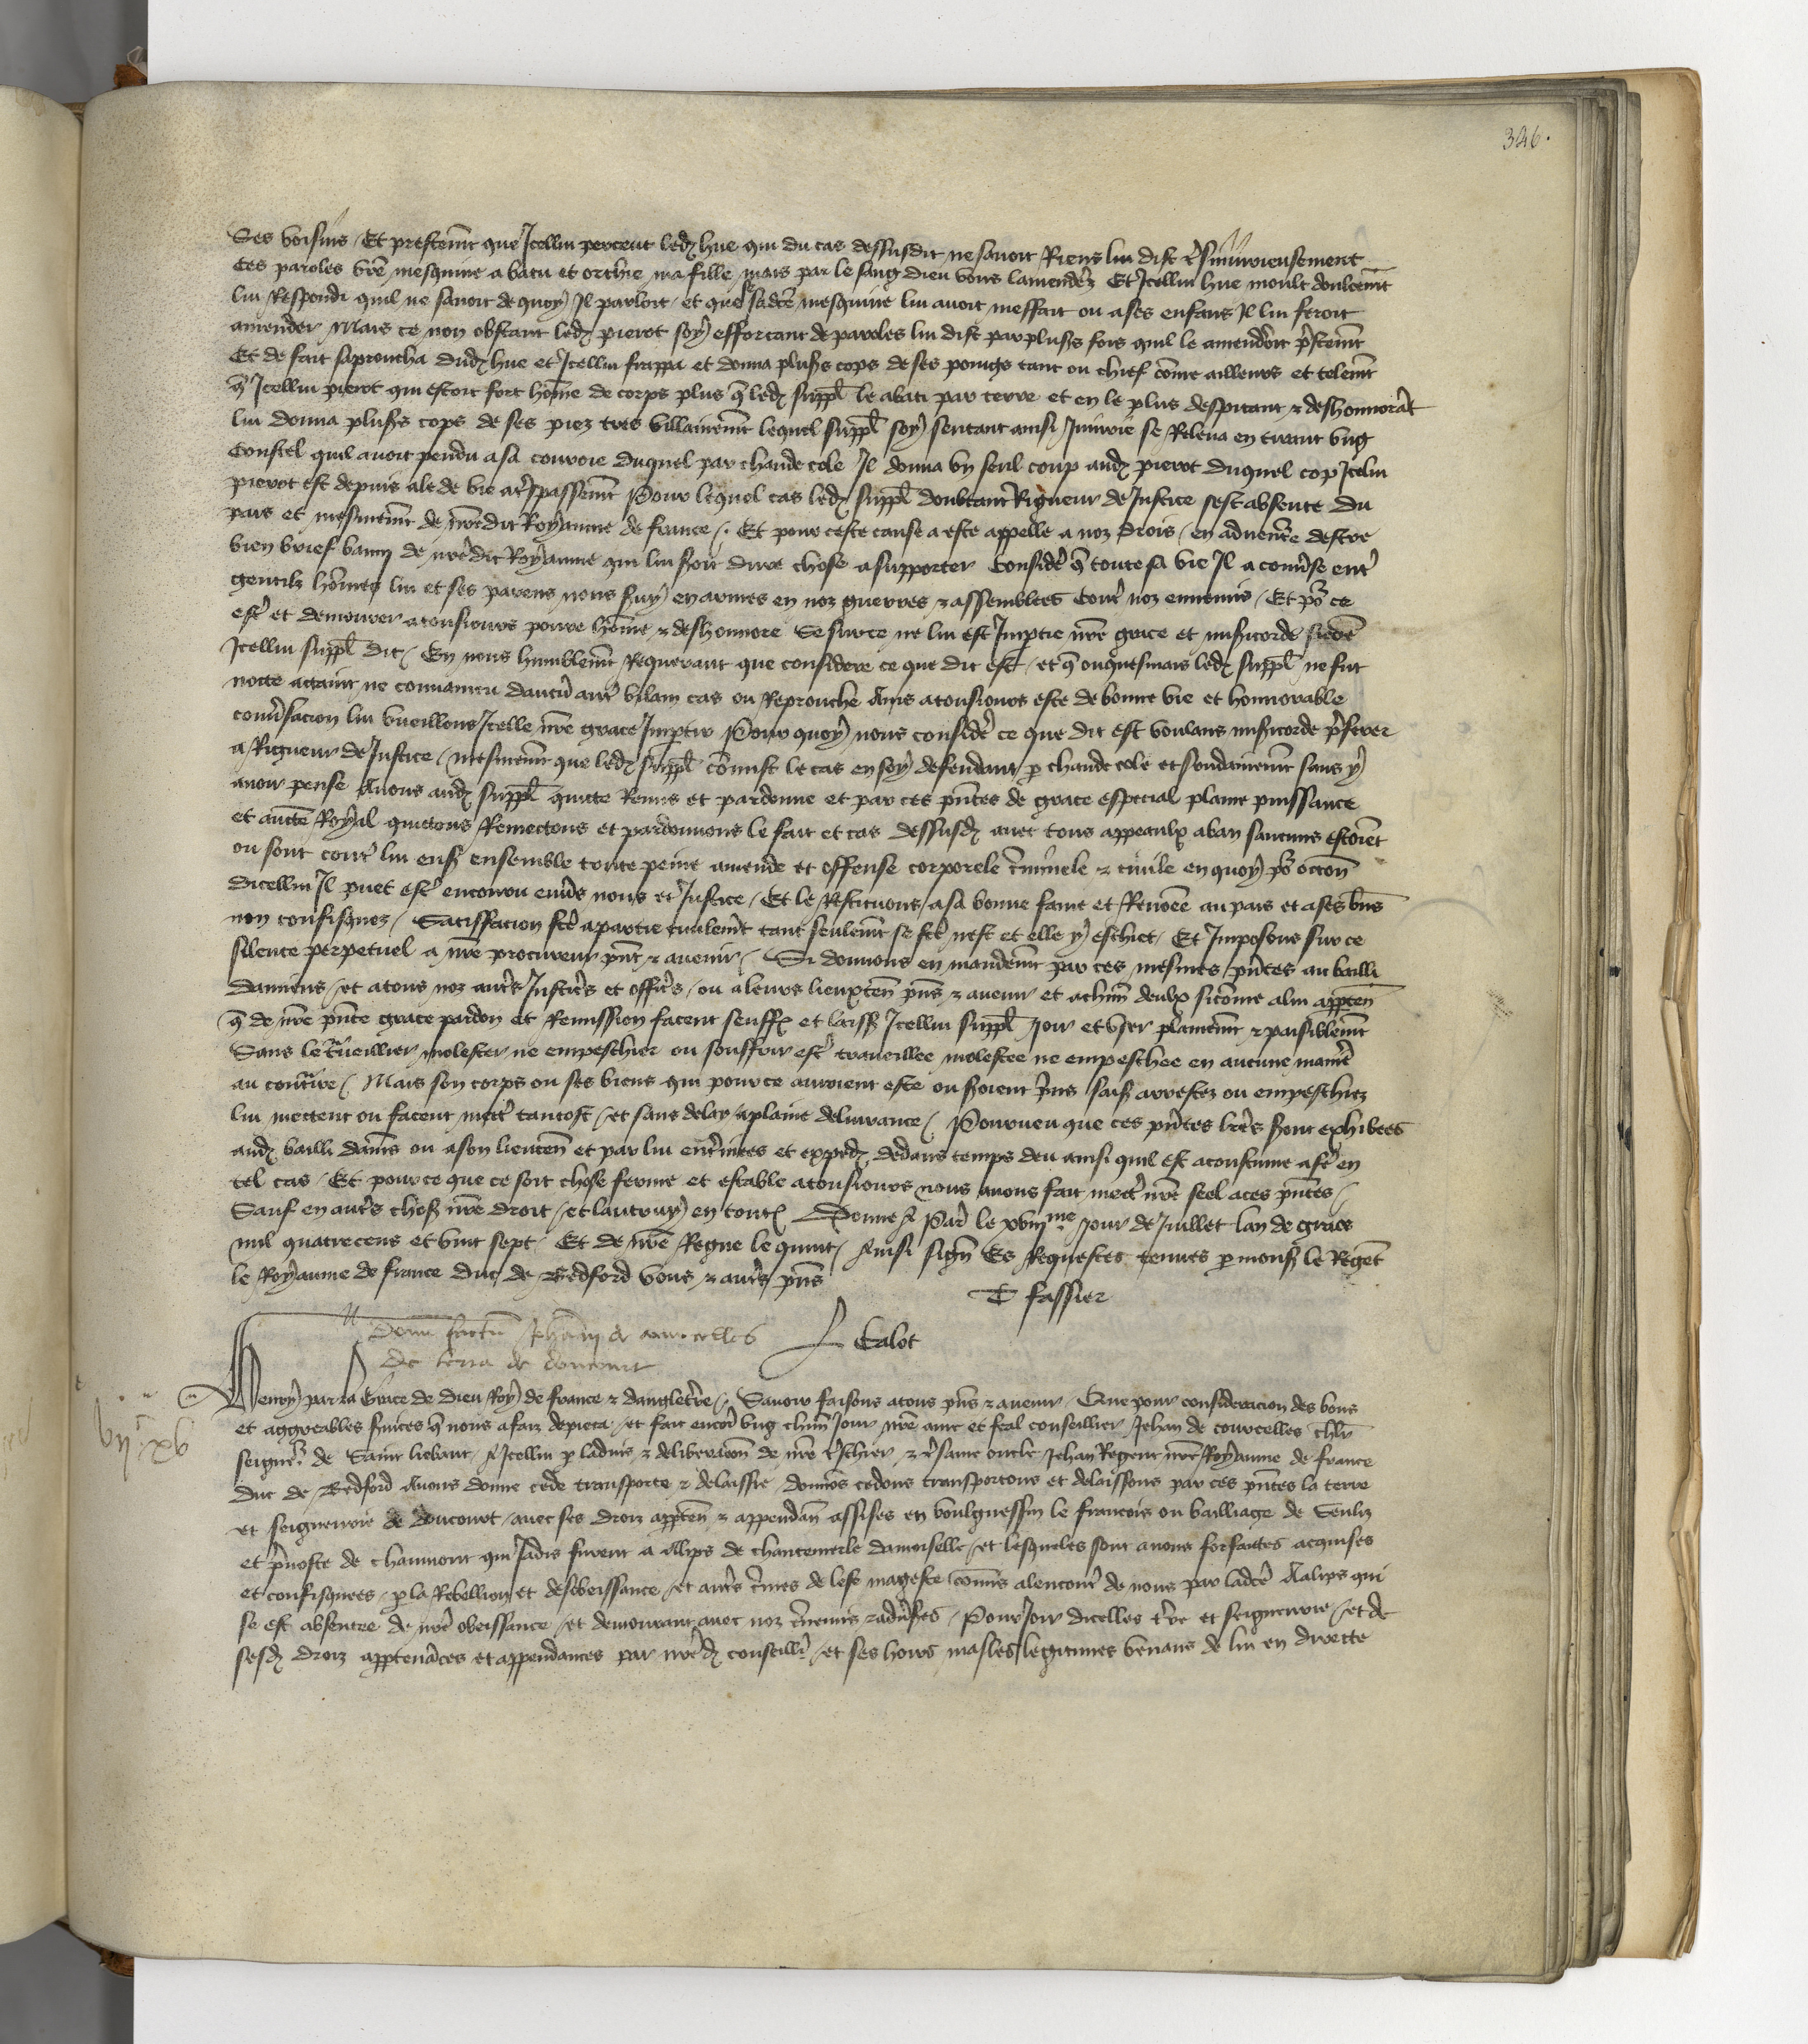 346.
Ses voisins / Et presteme͂t que Icellui perceut led hue qui du cas dessusdit ne savoit Riens lui dist Iniurieusement
Ces paroles vr̃e mesquine a batu et ma fille / mais par le sang dieu vous lamenderez Et Icellui hue moult doulcemt̃
lui Respondi quil ne savoit de quoy Il parloit / et que se sadc̃e mesquine lui avoit meffait ou a ses enfans Il lui feroit
amender Mais ce non obstant led pierot soy efforcant de paroles lui dist par plus̃s fois quil le amenderoit p̃stemt̃
Et de fait saproucha dud hue et Icellui frappa et donna plus̃s cops de ses poings tant ou chief com̃e ailleurs et telemt̃
q̃ Icellui pierot qui estoit fort hom̃e de corps plus q̃ led suppl̃ le abati par terre et en le plus despitant & deshonnorãt
lui donna plus̃s cops de ses piez tres villainemt̃ lequel suppl̃ soy sentant ainsi Iniurié se Releva en tirant ung
Coustel quil avoit pendu a sa couroie duquel par chaude cole Il donna un seul coup aud pierot duquel cop Icelui
pierot est depuis ale de vie a tr̃spassemt̃ Pour lequel cas led suppl̃ doubtant Rigueur de Justice sest absente du
pais et mesmemt̃ de nr̃edit Royaume de france /. Et pour ceste cause a este appelle a noz drois / en adventr̃e destre
bien brief banny de nr̃edit Royaume qui lui soit dure chose a supporter Considẽ q̃ toute sa vie Il a conv̂se entr̃
gentilz hom̃es lui et ses parens nous suy en armes en noz guerres & assemblees contr̃ noz ennemis / Et po͂ ce
estr̃ et demourer a tousiours povre hom̃e & deshonnore Se sur ce ne lui est Imptie nr̃e grace et misicorde sicõe
Icellui suppl̃ dit / En nous humblemt̃ Requerant que considere ce que dit est / et q̃ onquesmais led suppl̃ ne fut
notte actaint ne convaincu daucũ autr̃ vilain cas ou Reprouche Ains a tousiours este de bonne vie et honnorable
conv̂sacion lui vueillons Icelle nr̃e grace Imptir Pour quoy nous considẽ ce que dit est voulans misicorde p̃ferer
a Rigueur de Justice / mesmemt̃ que led suppl̃ com̃ist le cas en soy defendant p chaude cole et soudainemt̃ sans y
avoir pense Avons aud suppl̃ quitte Remis et pardonne et par ces pñtes de grace especial plaine puissance
et auctẽ Royal quictons Remectons et pardonnons le fait et cas dessusd avec tous appeaulx a ban saucuns estoiẽt
ou sont contr̃ lui ensß ensemble toute peine amende et offense corporele c̃minele & civile en quoy po͂ occõn
dicellui Il puet estr̃ encouru env̂s nous et Justice / Et le Restituons a sa bonne fame et Renom̃ee au pais et a ses bñs
non confisquez / Satisfacion fc̃e a partie civilemt̃ tant seulemt̃ se fc̃e nest et elle y eschiet / Et Imposons sur ce
silence perpetuel a nr̃e procureur pñt & avenir / Si donnons en mandemt̃ par ces mesmes pñtes au bailli
damiens / et a tous noz autr̃s Justicr̃s et officr̃s / ou a leurs lieuxten̄ pñs & avenir et a chũn deulx sicom̃e a lui apptẽn
q̃ de nr̃e pñte grace pardon et Remission facent seuffr̃ et laissß Icellui suppl̃ Joir et user plainemt̃ & paisiblemt̃
Sans le tr̃veillier molester ne empeschier ou souffrir estr̃ traveillee molestee ne empeschee en aucune manier̃
au contr̃ire / Mais son corps ou ses biens qui pour ce auroient este ou seroient p̃ns saisß arrestez ou empeschiez
lui mectent ou facent mectr̃ tantost / et sans delay a plaine delivrance / Pourveu que ces pñtes lr̃es seront exhibees
aud bailli damẽs ou a son lieuten̄ et par lui entr̃inees et expped̃ dedans temps deu ainsi quil est acoustume a fẽ en
tel cas / Et pour ce que ce soit chose ferme et estable a tousiours nous avons fait mectr̃ nr̃e seel a ces pñtes /
Sauf en autr̃s chosß nr̃e droit / et lautruy en toutß Donne a Par̃ le xviij me Jour de Juillet lan de grace
mil quatrecens et vint sept Et de nr̃e Regne le quint / Ainsi sign̄ Es Requestes tenues p monsß le Regẽt
le Royaume de france duc de Bedford vous & autr̃s pñs
T fassier
Calot
Donũ factũ Joh̃ni de courcelles
de terra de doucourt
Henry par la Grace de Dieu Roy de france & dangletr̃re / Savoir faisons a tous pñs & avenir / Que pour consideracion des bons
et aggreables s̃vices q̃ nous a faiz depieca / et fait encor̃ ung chũn Jour nr̃e ame et feal conseillier Jehan de courcelles chlr̃
seign̄r de Saint liebaut / A Icellui p ladvis & deliberacõn de nr̃e tr̃schier & tr̃same oncle Jehan Regent nr̃e Royaume de france
duc de Bedford Avons donne cede transporte & delaissie / donnõs cedons transportons et delaissons par ces pñtes la terre
et seigneurie de doucourt / avec ses droiz appten̄ & appendañ assises en voulguessin le francois ou bailliage de Senliz
et p̃voste de chaumont qui Jadis furent a Alips de chantemerle damoiselle / et lesqueles sont a nous forfaictes acquises
et confisquees / p la Rebellion et desobeissance / et autr̃s c̃mes de lese mageste com̃is alencontr̃ de nous par ladc̃e Aalips qui
se est absentee de nr̃e obeissance / et demourant avec noz ẽnemis & adv̂ses / Pour Joir dicelles tr̃re et seigneurie / et de
sesd droiz apptenãces et appendances par nr̃ed conseillr̃ / et ses hoirs masles legitimes venans de lui en directe